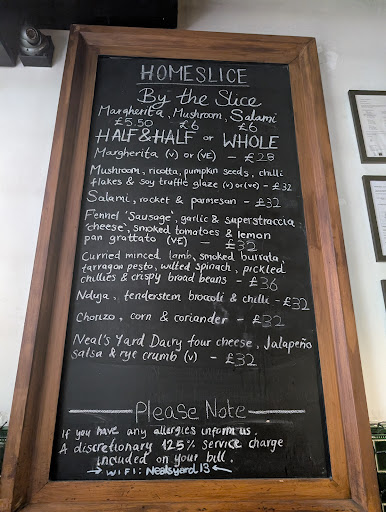 HOMESLICE
By the Slice
Margherita, Mushroom, Salami
£5.50 £6 £6
HALF & HALF or WHOLE
Margherita (v) or (VE) - £28
Mushroom, ricotta, pumpkin seeds, chilli
flakes & soy truffle glaze (v) or (ve) - £32
Salami, rocket & parmesan - £32
Fennel 'Sausage', garlic & superstraccia
'cheese', smoked tomatoes & lemon
pan grattato (VE) - £32
Curried minced lamb, smoked burrata,
tarragon pesto, wilted spinach, pickled
chillies & crispy broad beans - £36
Nduja, tenderstem brocoli & chilli - £32
Chorizo, corn & coriander - £32
Neal's Yard Dairy four cheese, Jalapeño
salsa & rye crumb (v) - £32
Please Note
If you have any allergies inform us.
A discretionary 12.5% service charge
included on your bill.
→ WIFI: Nealsyard13 ←